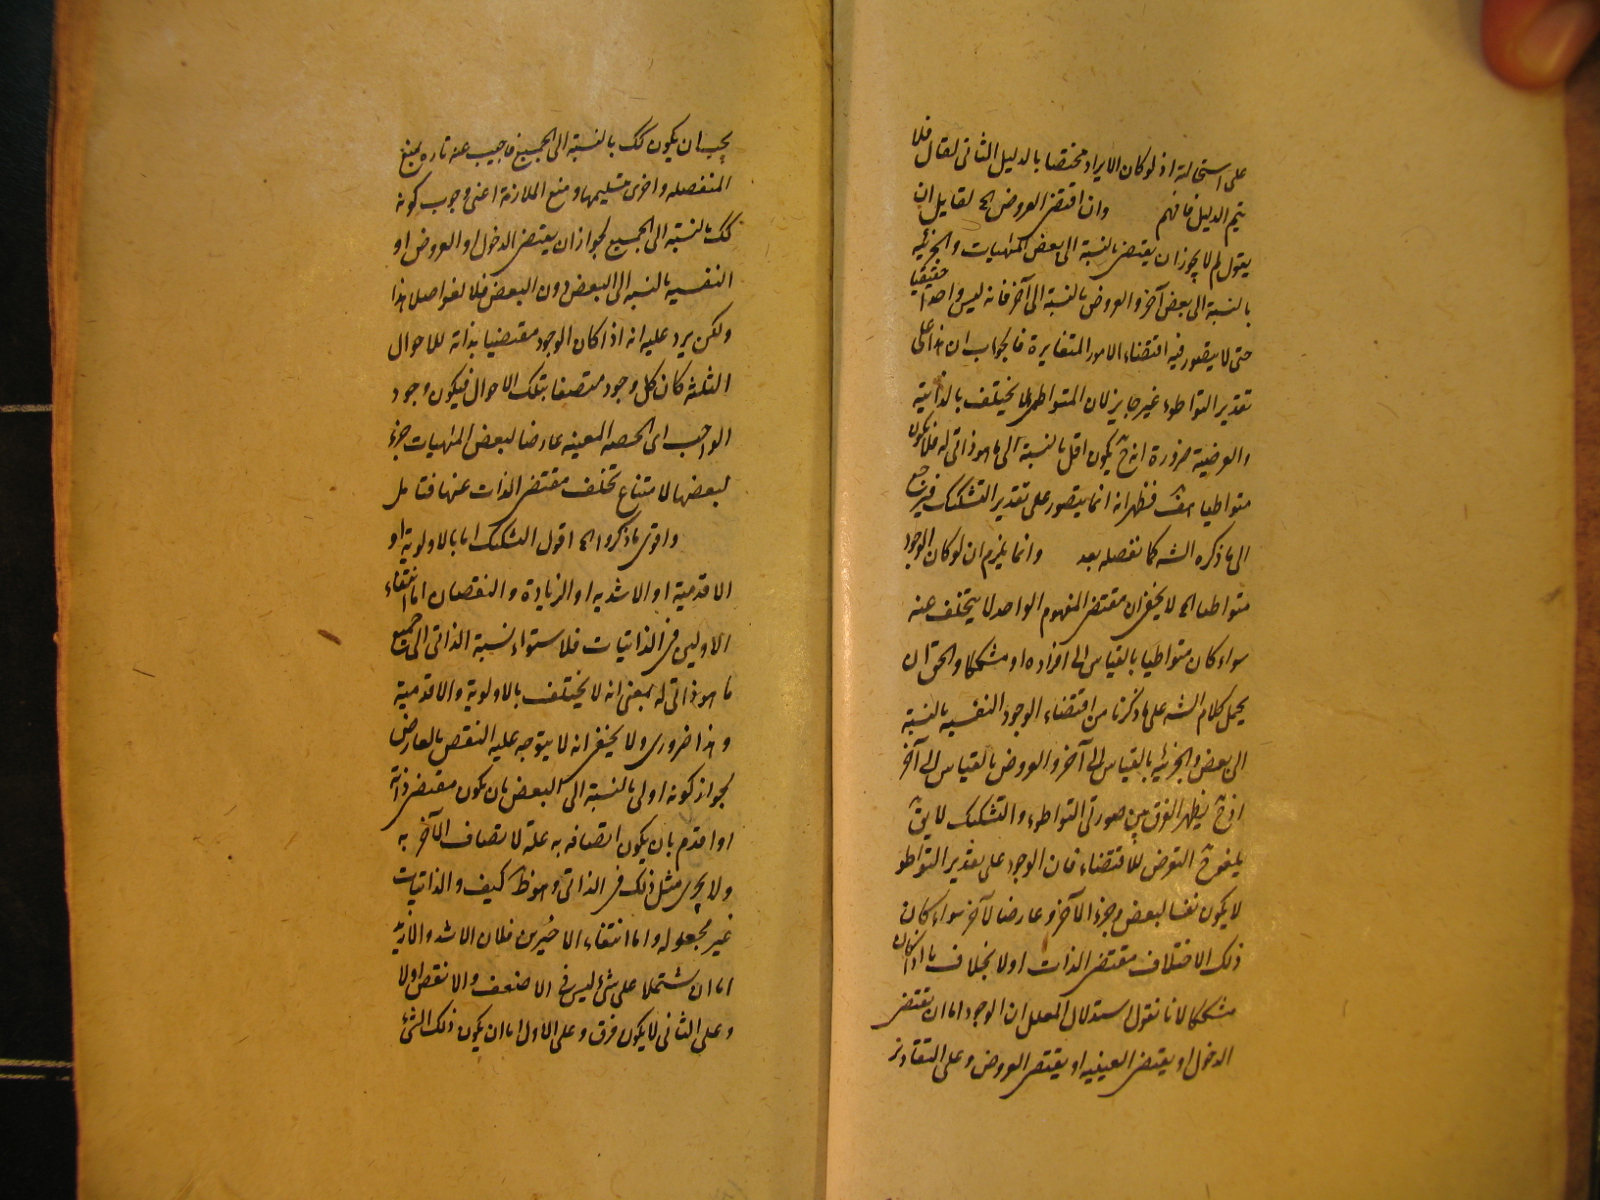 على استحالته اذ لو كان الايراد مختصا بالدليل الثانى لقال فلا
يتم الدليل فافهم وان اقتضى العروض الخ لقايل ان
يقول لم لا يجوز ان يقتضى بالنسبة الى بعض المهيات والجزئية
بالنسبة الى بعض آخر والعروض بالنسبة الى آخر فانه ليس واحدا حقيقيا
حتى لا يتصور فيه اقتضاء الامور المتغايرة فالجواب ان هذا على
تقدير التواطوء غير جايز لان المتواطى لا يختلف بالذاتية
والعرضية ضرورة انه ح يكون اقل بالنسبة الى ما هو ذاتى له فلا يكون
متواطيا هف فظهر انه انما يتصور على تقدير التشكيك فيرجع
الى ما ذكره الشه كما نفصله بعد وانما يلزم ان لو كان الوجود
متواطيا الخ لا يخفى ان مقتضى المفهوم الواحد لا يتخلف عنه
سواء كان متواطيا بالقياس الى افراده او مشككا والحق ان
يحمل كلام الشه على ما ذكرنا من اقتضاء الوجود النفسية بالنسبة
الى بعض والجزئية بالقياس الى آخر والعروض بالقياس الى آخر
اذ ح يظهر الفرق بين صورتى التواطوء والتشكيك لا يق
يلغو ح التعرض للاقتضاء فان الوجود على تقدير التواطو
لا يكون نفسا لبعض وجزء الآخر وعارضا لآخر سواء كان
ذلك الاختلاف مقتضى الذات اولا بخلاف ما اذا كان
مشككا لانا نقول استدلال المعلل ان الوجود اما ان يقتضى
الدخول او يقتضى العينية او يقتضى العروض وعلى التقادير
يجب ان يكون كك بالنسبة الى الجميع فاجيب عنه تارة بمنع
المنفصله واخرى بتسليمها ومنع الملازمة اعنى وجوب كونه
كك بالنسبة الى الجميع لجواز ان يقتضى الدخول او العروض او
النفسية بالنسبة الى البعض دون البعض فلا لغو اصلا هذا
ولكن يرد عليه انه اذا كان الوجود مقتضيا بذاته للاحوال
الثلثة كان كل وجود متصفا بتلك الاحوال فيكون وجود
الواجب اى الحصه المعينه عارضا لبعض المهيات جزء
لبعضها لامتناع تخلف مقتضى الذات عنها فتامل
واقوى ما ذكروا الخ اقول التشكيك اما بالاولوية او
الاقدمية او الاشدية او الزيادة والنقصان اما انتفاء
الاولين فى الذاتيات فلاستواء نسبة الذاتى الى جميع
ما هو ذاتى له بمعنى انه لا يختلف بالاولوية والاقدمية
وهذا ضرورى ولا يخفى انه لا يتوجه عليه النقض بالعارض
لجواز كونه اولى بالنسبة الى البعض بان يكون مقتضى ذاته
او اقدم بان يكون اتصافه به علة لاتصاف الآخر به
ولا يجرى مثل ذلك فى الذاتى وهو ظ كيف والذاتيات
غير مجعوله واما انتفاء الاخيرين فلان الاشد والازيد
اما ان يشتملا على شئ ليس فى الاضعف والانقص اولا
وعلى الثانى لا يكون فرق وعلى الاول اما ان يكون ذلك الشئ